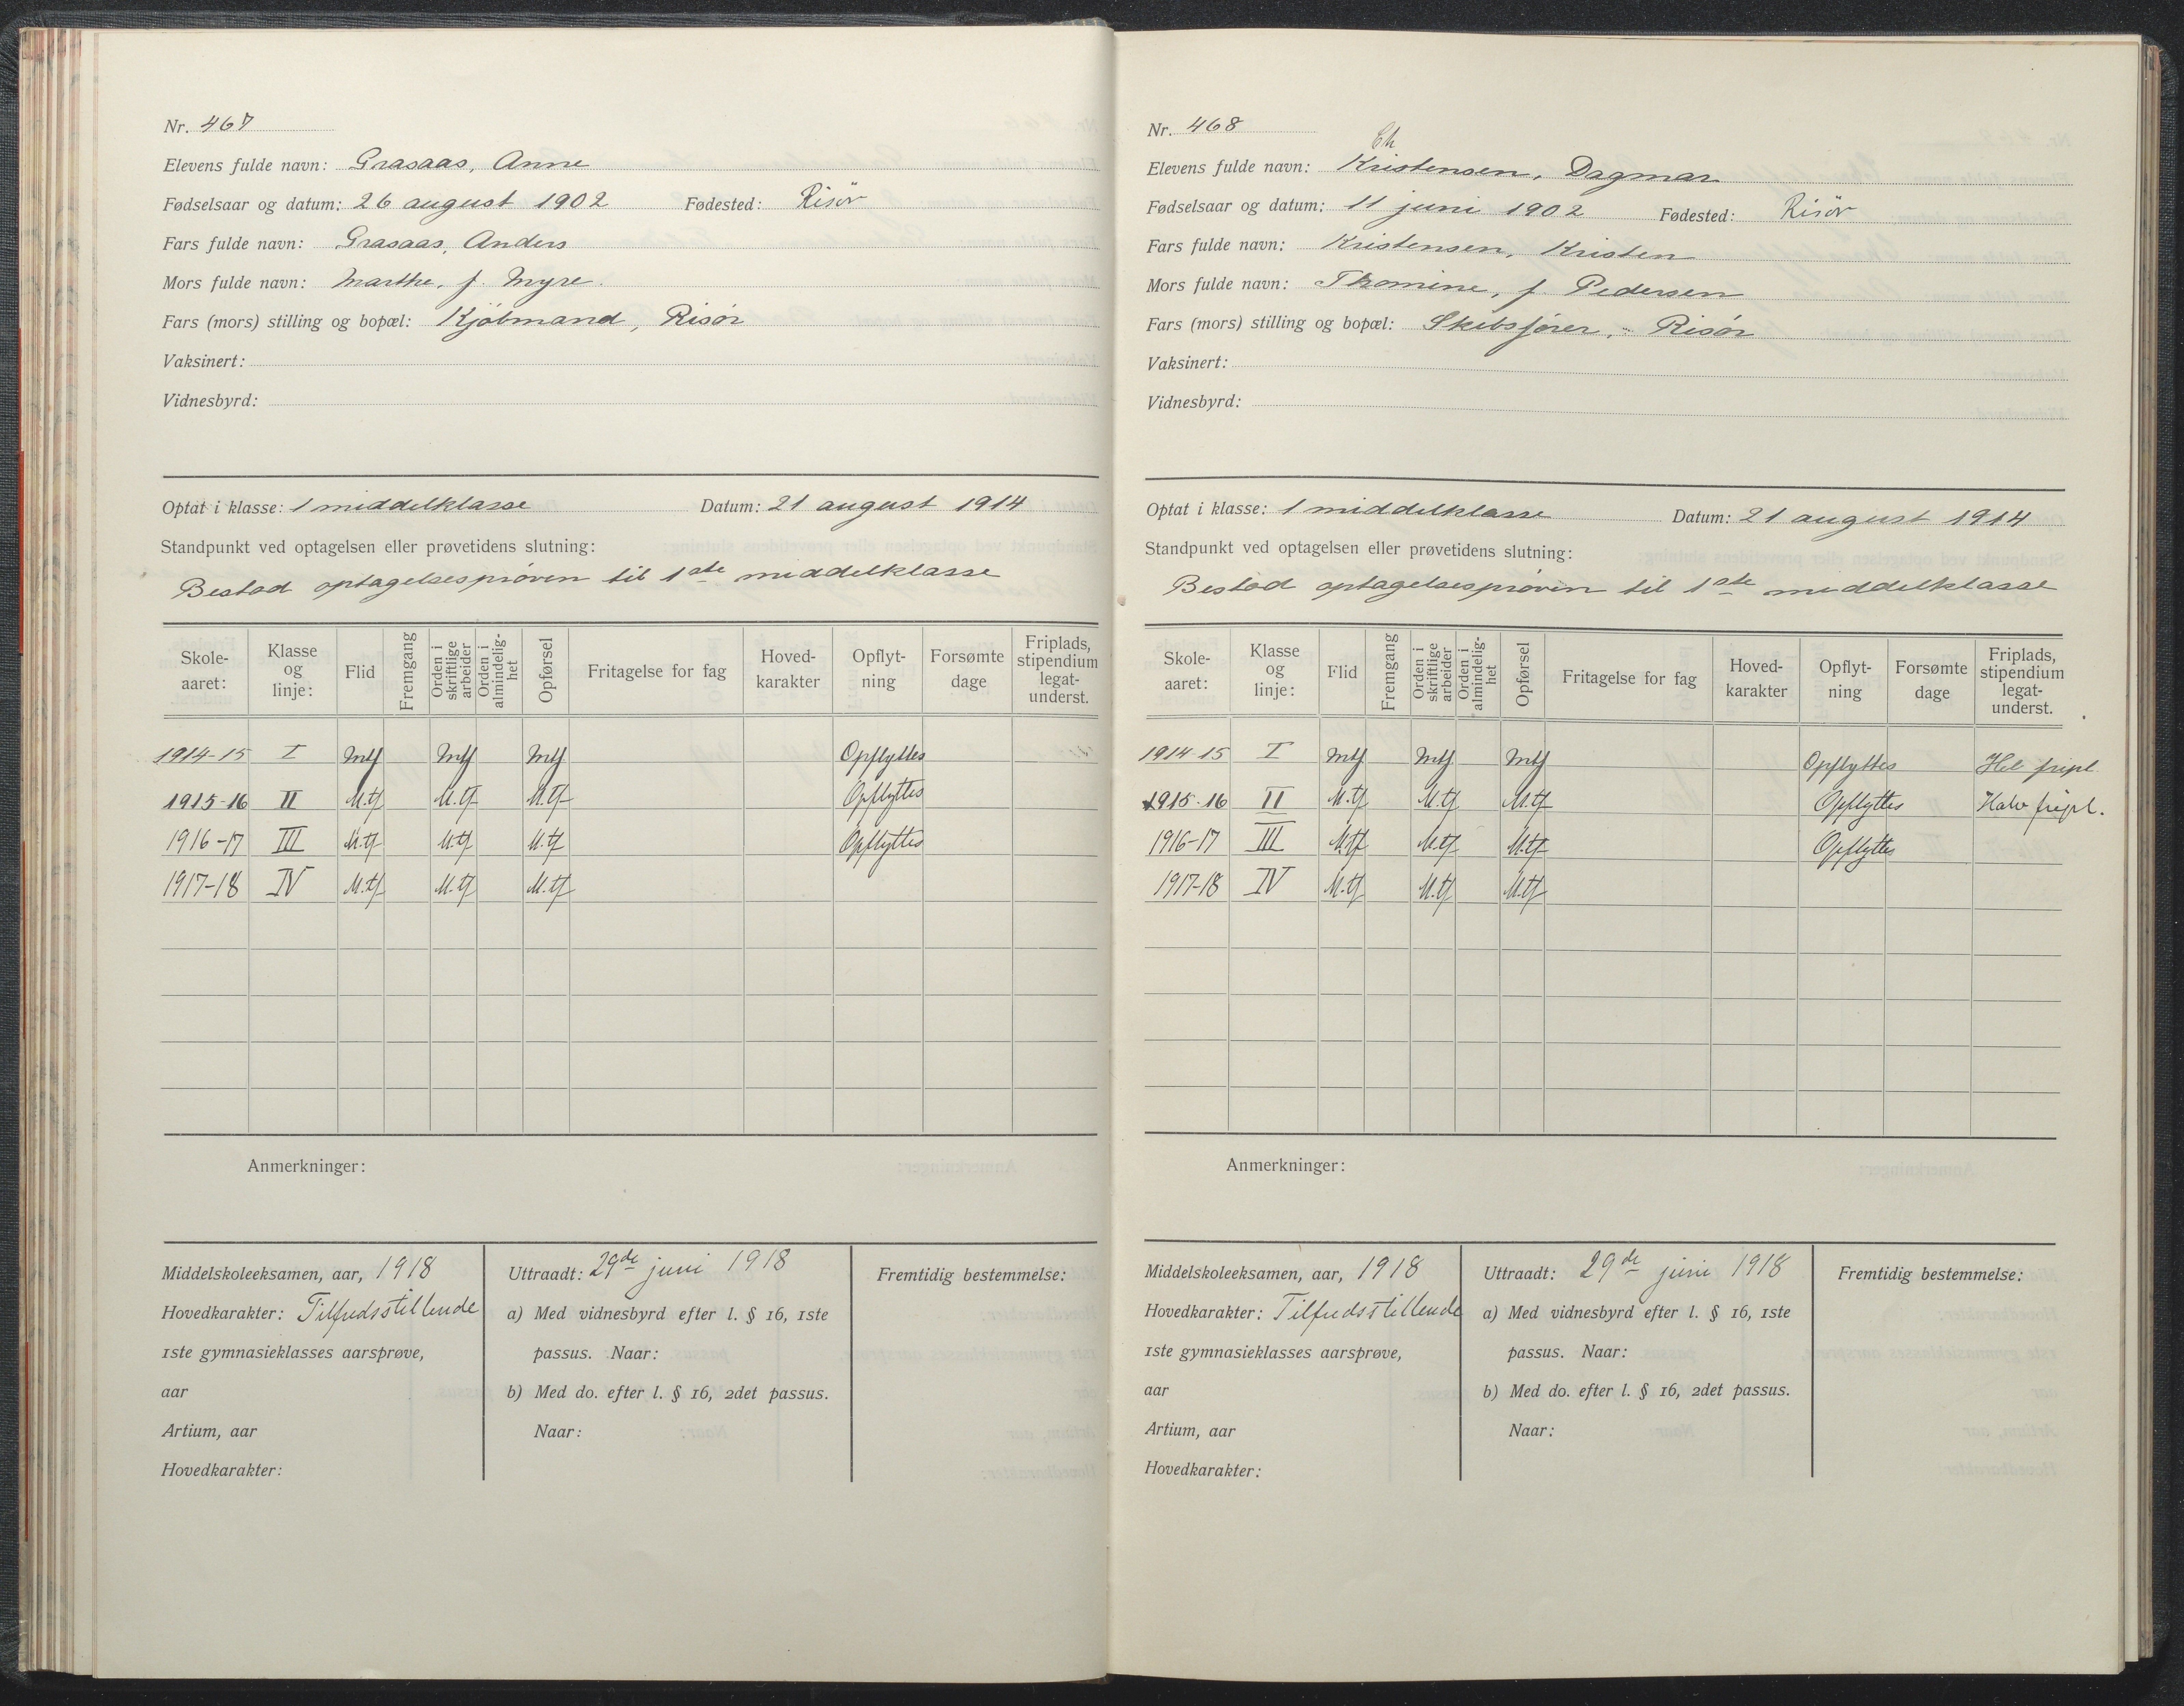 Nr. 467
Elevens fulde navn: Grasaas, Anne
Fødselsaar og datum: 26 august 1902 Fødested: Risör
Fars fulde navn: Grasaas, Anders
Mors fulde navn: Marthe, f. Myre.
Fars (mors) stilling og bopæl: Kjøbmand, Risør
Vaksinert:
Vidnesbyrd:
Optat i klasse: 1 middelklasse Datum: 21 august 1914
Standpunkt ved optagelsen eller prøvetidens slutning:
Bestod optagelsesprøven til 1ste middelklasse
Skole-aaret: Klasse og linje: Flid Fremgang Orden i skriftlige arbeider Orden i almindelig-het Opførsel Fritagelse for fag Hoved-karakter Opflyt-ning Forsømte dage Friplads, stipendium legat-underst.
1914-15 I Mtf Mtf Mtf Opflyttes
1915-16 II M.tf M.tf M.tf Opflyttes
1916-17 III M.tf M.tf M.tf Opflyttes
1917-18 IV M.tf M.tf M.tf
Anmerkninger:
Middelskoleeksamen, aar, 1918
Hovedkarakter: Tilfredsstillende
1ste gymnasieklasses aarsprøve,
aar
Artium, aar
Hovedkarakter:
Uttraadt: 29de juni 1918
a) Med vidnesbyrd efter l. § 16, 1ste
passus. Naar:
b) Med do. efter l. § 16, 2det passus.
Naar:
Fremtidig bestemmelse:
Nr. 468
Ch
Elevens fulde navn: Kristensen, Dagmar
Fødselsaar og datum: 11 juni 1902 Fødested: Risör
Fars fulde navn: Kristensen, Kristen
Mors fulde navn: Thomine, f Pedersen
Fars (mors) stilling og bopæl: Skibsfører, - Risør
Vaksinert:
Vidnesbyrd:
Optat i klasse: 1 middelklasse Datum: 21 august 1914
Standpunkt ved optagelsen eller prøvetidens slutning:
Bestod optagelsesprøven til 1ste middelklasse
Skole-aaret: Klasse og linje: Flid Fremgang Orden i skriftlige arbeider Orden i almindelig-het Opførsel Fritagelse for fag Hoved-karakter Opflyt-ning Forsømte dage Friplads, stipendium legat-underst.
1914-15 I Mtf Mtf Mtf Opflyttes Hel fripl
1915-16 II M.tf M.tf M.tf Opflyttes Halv fripl.
1916-17 III M.tf M.tf M.tf Opflyttes
1917-18 IV M.tf M.tf M.tf
Anmerkninger:
Middelskoleeksamen, aar, 1918
Hovedkarakter: Tilfredsstillende
1ste gymnasieklasses aarsprøve,
aar
Artium, aar
Hovedkarakter:
Uttraadt: 29de juni 1918
a) Med vidnesbyrd efter l. § 16, 1ste
passus. Naar:
b) Med do. efter l. § 16, 2det passus.
Naar:
Fremtidig bestemmelse: